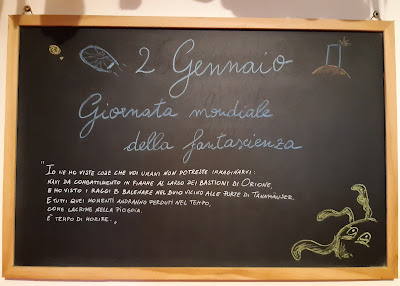 2 Gennaio
Giornata mondiale
della fantascienza
"Io ne ho viste cose che voi umani non potreste immaginarvi:
navi da combattimento in fiamme al largo dei bastioni di Orione,
e ho visto i raggi B balenare nel buio vicino alle porte di Tannhäuser.
E tutti quei momenti andranno perduti nel tempo.
come lacrime nella pioggia.
È tempo di morire."